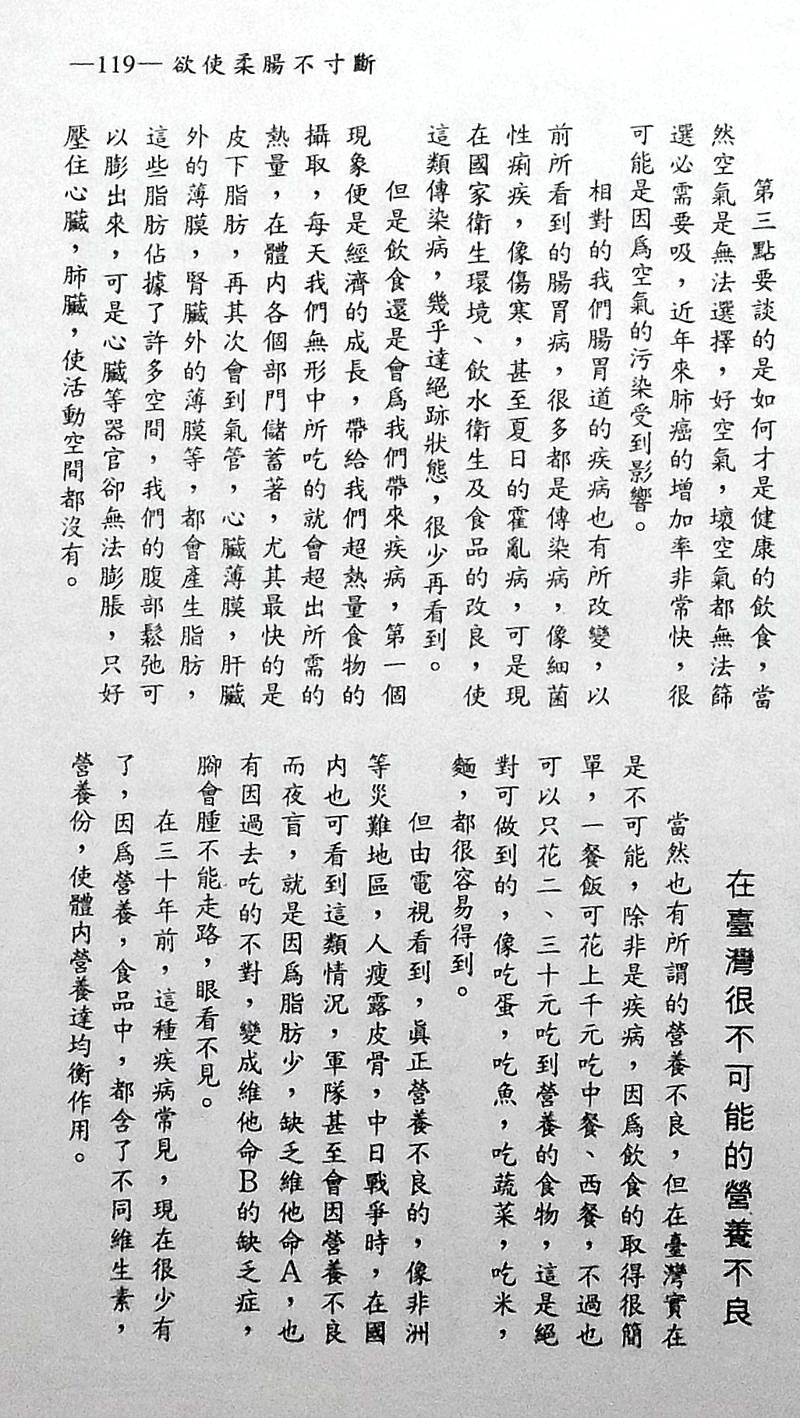 —119— 欲使柔腸不寸斷
第三點要談的是如何才是健康的飲食，當
然空氣是無法選擇，好空氣，壞空氣都無法篩
選必需要吸，近年來肺癌的增加率非常快，很
可能是因爲空氣的污染受到影響。
相對的我們腸胃道的疾病也有所改變，以
前所看到的腸胃病，很多都是傳染病，像細菌
性痢疾，像傷寒，甚至夏日的霍亂病，可是現
在國家衛生環境、飲水衛生及食品的改良，使
這類傳染病，幾乎達絕跡狀態，很少再看到。
但是飲食還是會爲我們帶來疾病，第一個
現象便是經濟的成長，帶給我們超熱量食物的
攝取，每天我們無形中所吃的就會超出所需的
熱量，在體內各個部門儲蓄著，尤其最快的是
皮下脂肪，再其次會到氣管，心臟薄膜，肝臟
外的薄膜，腎臟外的薄膜等，都會產生脂肪，
這些脂肪佔據了許多空間，我們的腹部鬆弛可
以膨出來，可是心臟等器官卻無法膨脹，只好
壓住心臟，肺臟，使活動空間都沒有。
在臺灣很不可能的營養不良
當然也有所謂的營養不良，但在臺灣實在
是不可能，除非是疾病，因爲飲食的取得很簡
單，一餐飯可花上千元吃中餐、西餐，不過也
可以只花二、三十元吃到營養的食物，這是絕
對可做到的，像吃蛋，吃魚，吃蔬菜，吃米，
麵，都很容易得到。
但由電視看到，眞正營養不良的，像非洲
等災難地區，人瘦露皮骨，中日戰爭時，在國
内也可看到這類情況，軍隊甚至會因營養不良
而夜盲，就是因爲脂肪少，缺乏維他命A，也
有因過去吃的不對，變成維他命B的缺乏症，
腳會腫不能走路，眼看不見。
在三十年前，這種疾病常見，現在很少有
了，因爲營養，食品中，都含了不同維生素，
營養份，使體內營養達均衡作用。